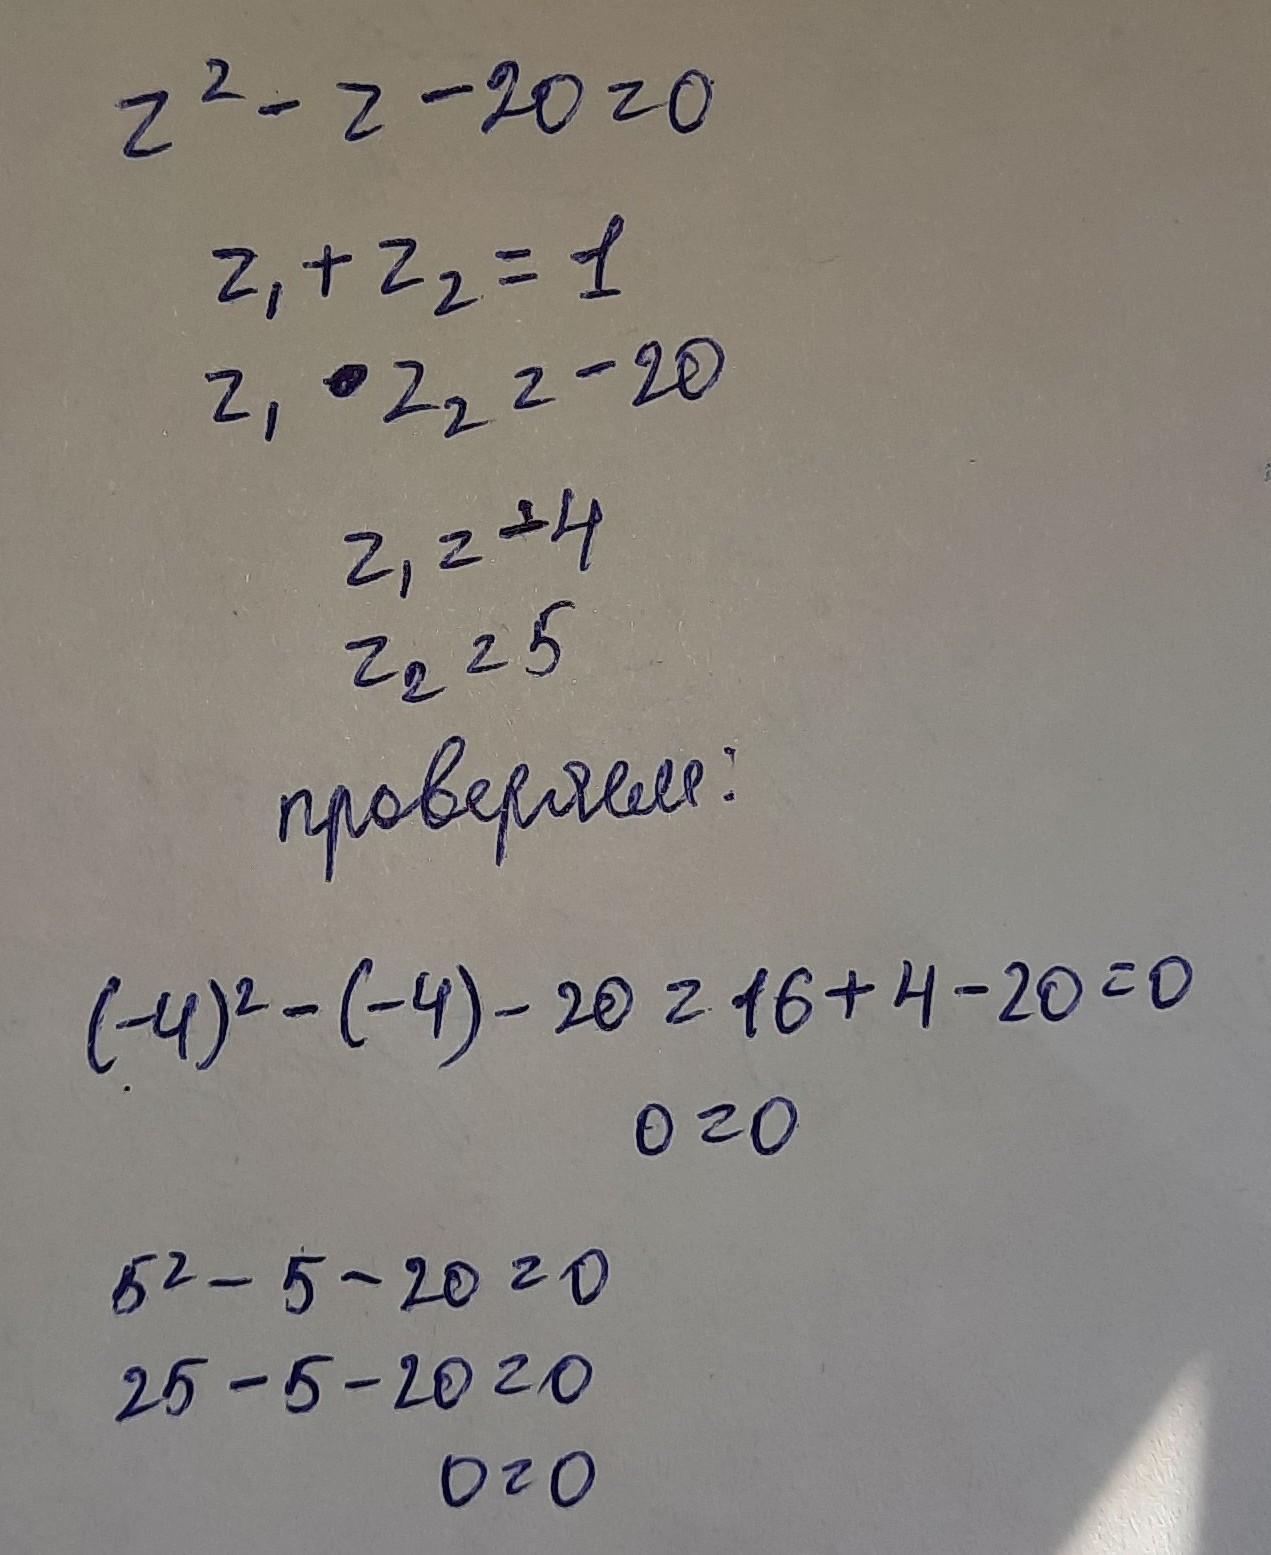 z² - z - 20 = 0
z₁ + z₂ = 1
z₁ • z₂ = -20
z₁ = -4
z₂ = 5
проверяем:
(-4)² - (-4) - 20 = 16 + 4 - 20 = 0
0 = 0
5² - 5 - 20 = 0
25 - 5 - 20 = 0
0 = 0